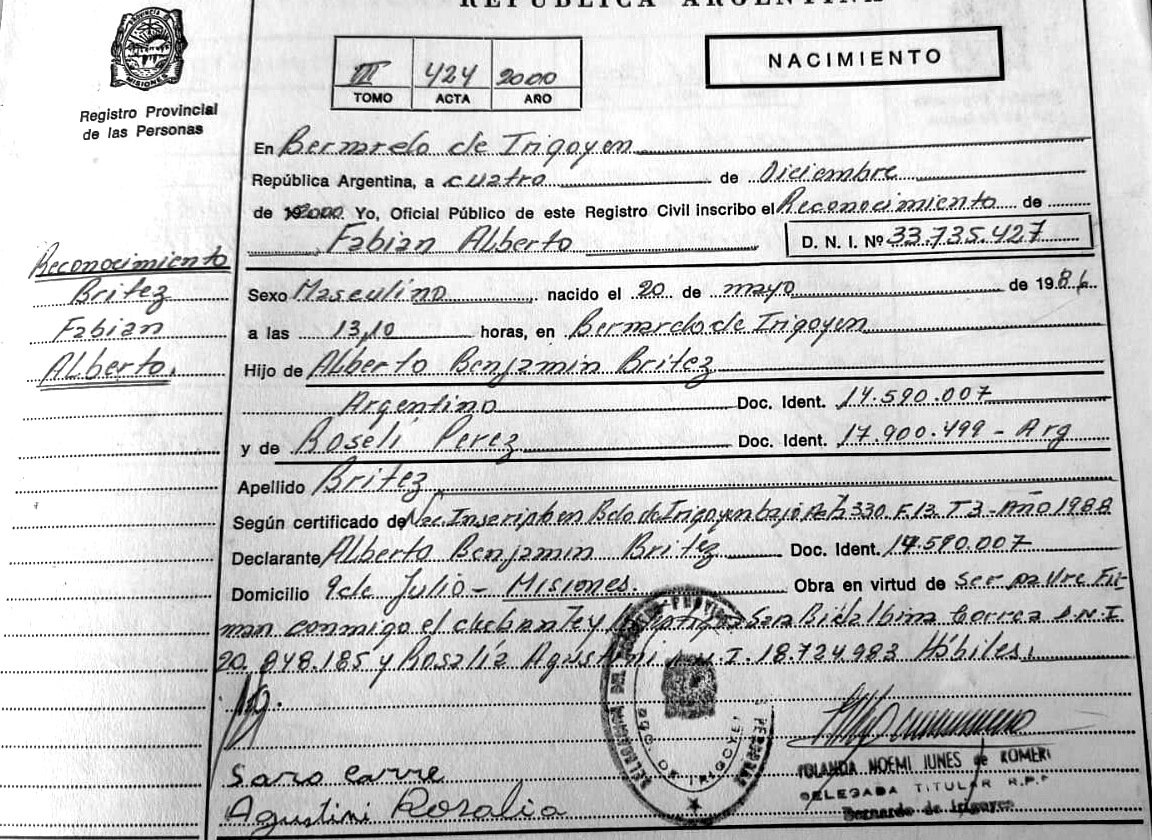 REPUBLICA ARGENTINA
NACIMIENTO
III 424 2000
TOMO ACTA AÑO
Registro Provincial
de las Personas
En Bernardo de Irigoyen
República Argentina, a cuatro de Diciembre
de 2000 Yo, Oficial Público de este Registro Civil inscribo el Reconocimiento de
Fabian Alberto D. N. I. Nº 33.735.427
Reconocimiento
Britez
Fabian
Alberto.
Sexo Masculino nacido el 20 de mayo de 1986
a las 13,10 horas, en Bernardo de Irigoyen
Hijo de Alberto Benjamin Britez
Argentino Doc. Ident. 14.590.007
y de Roselí Perez Doc. Ident. 17.900.499 - Arg
Apellido Britez
Según certificado de Nac. Inscripto en Bdo de Irigoyen bajo 330 F.13 T3 - Año 1988
Declarante Alberto Benjamin Britez Doc. Ident. 14.590.007
Domicilio 9 de Julio - Misiones Obra en virtud de Ser padre Fir-
man conmigo el y Sara Correa D.N.I.
20.848.185 y Rosalía Agustini D.N.I. 18.724.983 Hábiles.
Sara
Agustini Rosalia
YOLANDA NOEMI IUNES de ROMERI
DELEGADA TITULAR R.P.P
Bernardo de Irigoyen